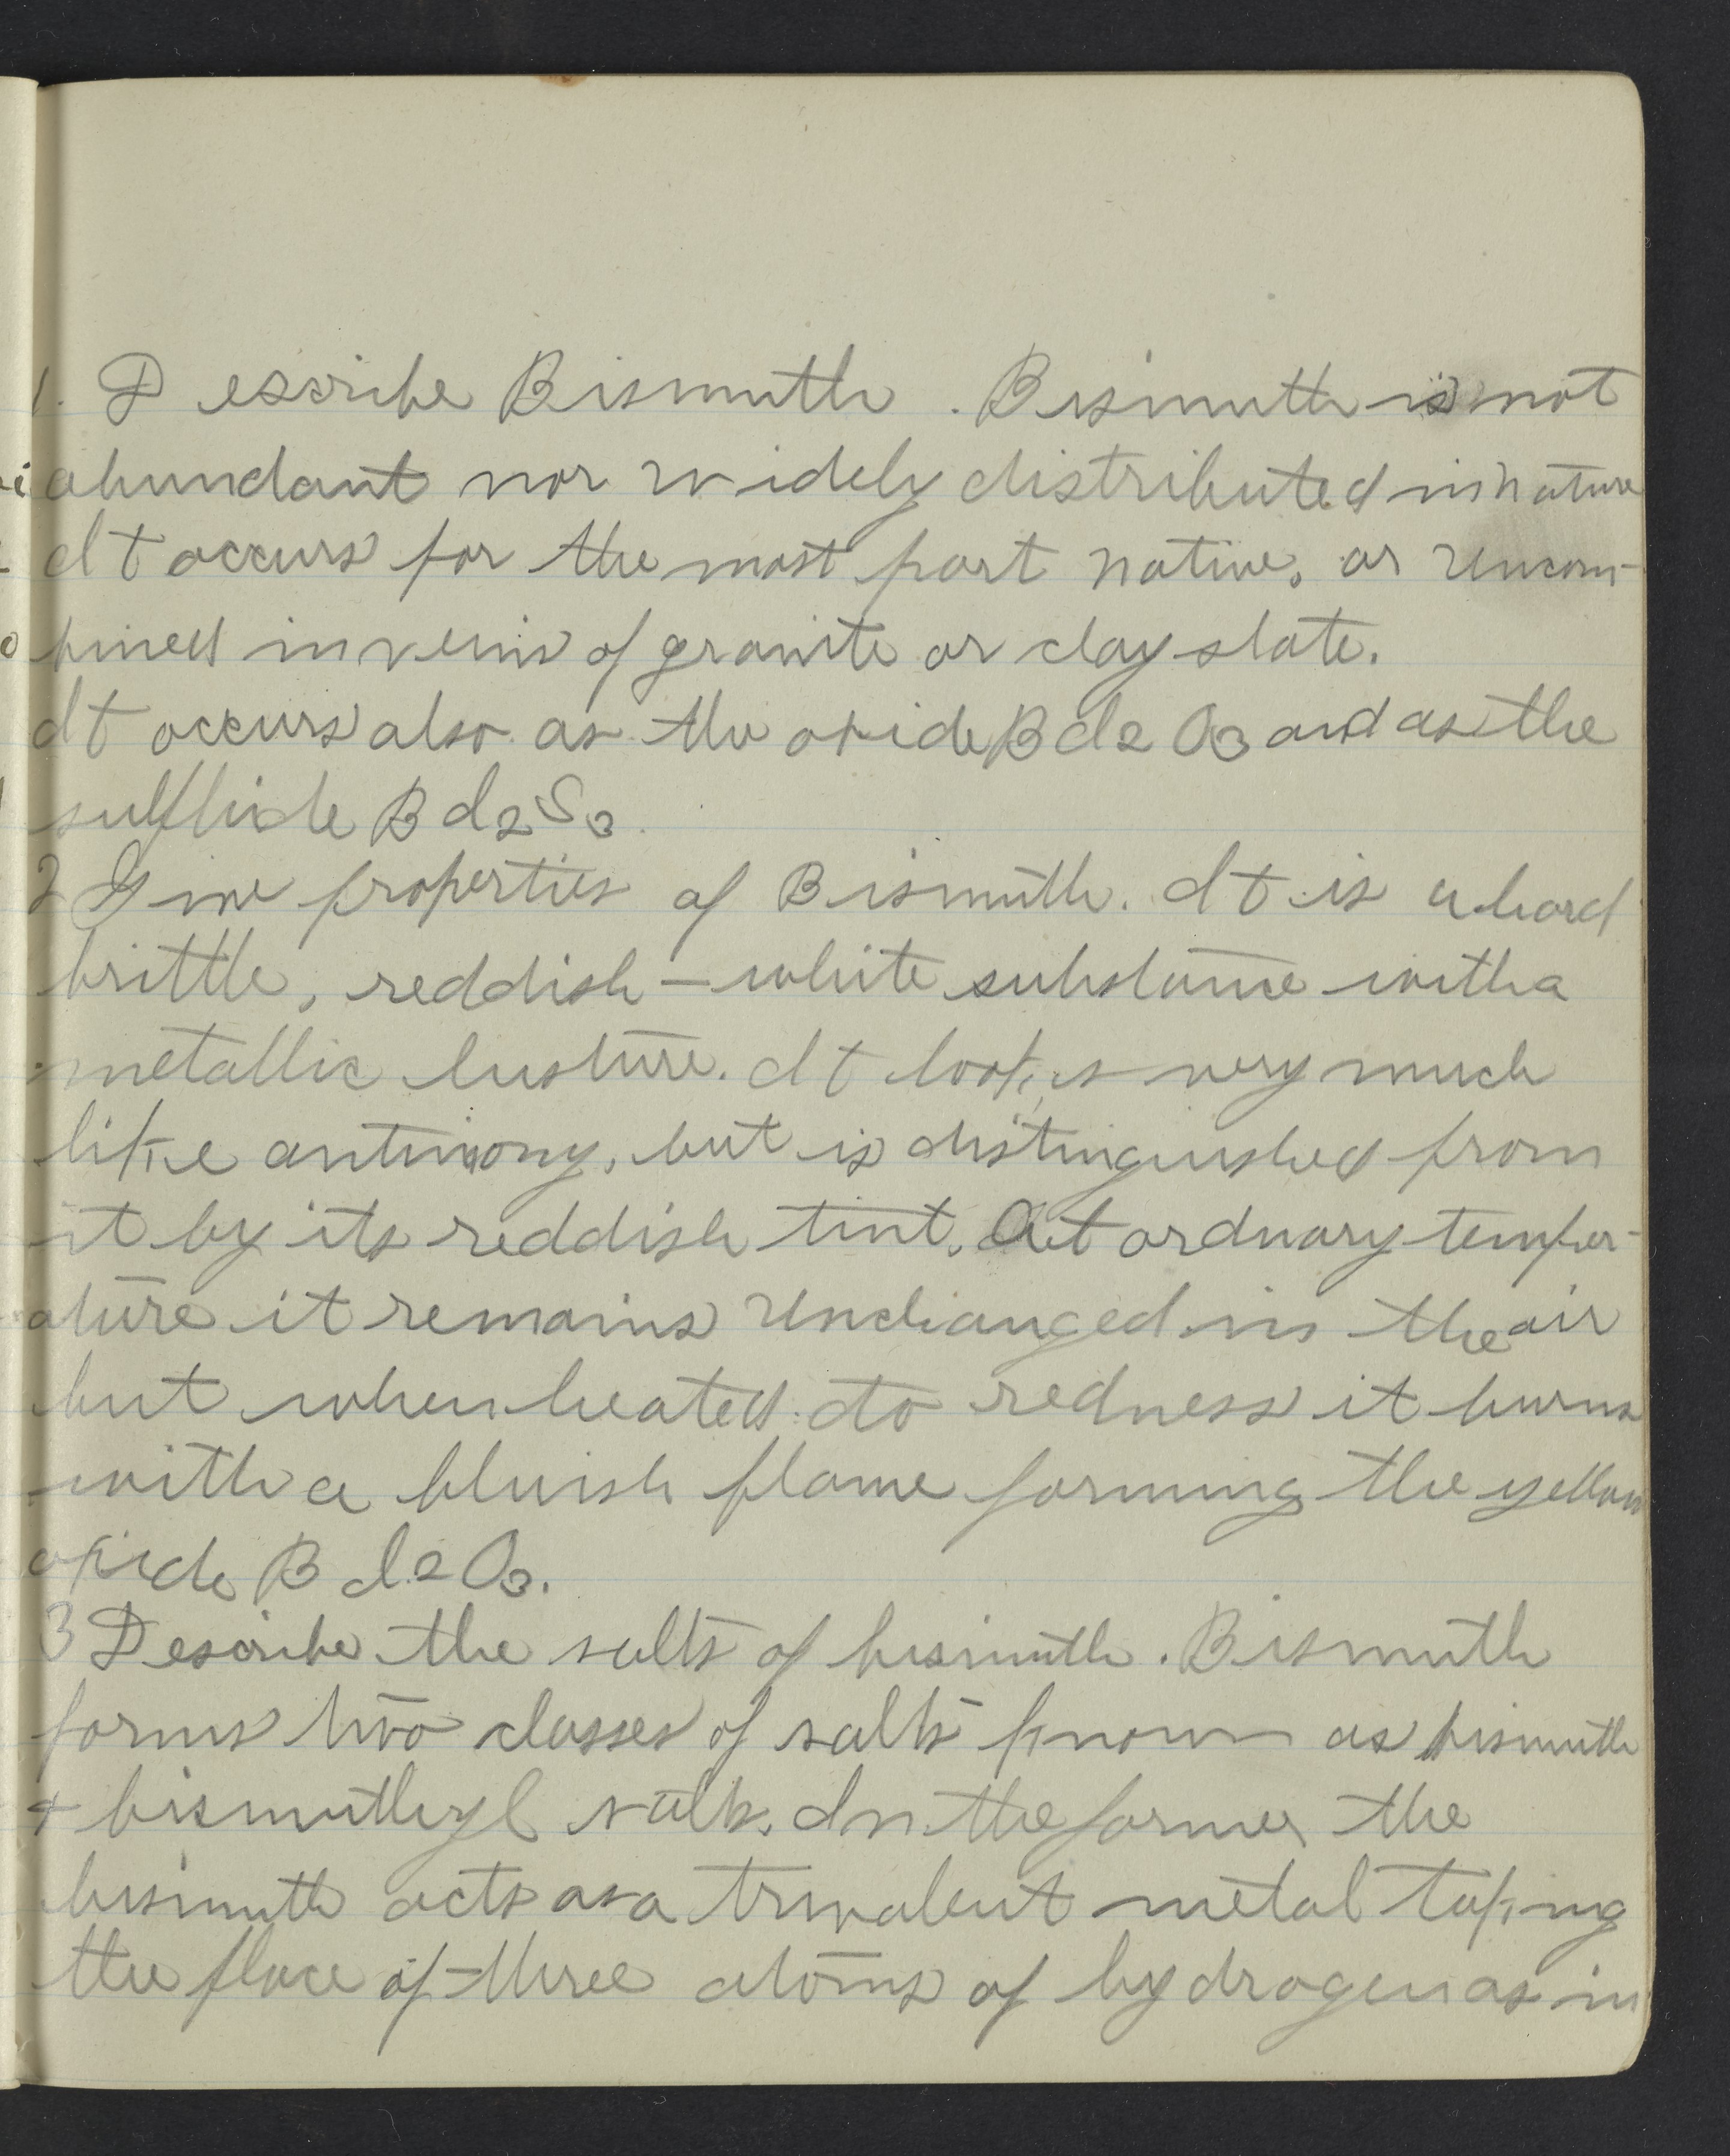 1. Describe Bismuth. Bismuth is not
abundant nor widely distributed in nature
It occurs for the most part native, or uncom-
bined in veins of granite or clay slate.
It occurs also as the oxide BI2O3 and as the
sulfhide BI2S3.
2 Give properties of Bismuth. It is a hard
brittle, reddish-white substance with a
metallic lusture. It looks very much
like antimony, but is distinguished from
it by its reddish tint. At ordnary temper-
ature it remains unchanged in the air
but when heated to redness it burns
with a bluish flame forming the yellow
oxide BI2O3.
3 Describe the salts of bismuth. Bismuth
forms two classes of salts known as bismuth
+ bismuthyl salts. In the former the
bismuth acts as a trivalent metal taking
the place of three atoms of hydrogen as in